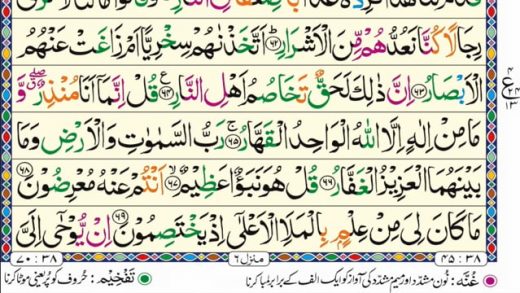 رِجَالًا كُنَّا نَعُدُّهُمْ مِّنَ الْاَشْرَارِ ۝٦٢ اَتَّخَذْنٰهُمْ سِخْرِيًّا اَمْ زَاغَتْ عَنْهُمُ
الْاَبْصَارُ ۝٦٣ اِنَّ ذٰلِكَ لَحَقٌّ تَخَاصُمُ اَهْلِ النَّارِ ۝٦٤ قُلْ اِنَّمَاۤ اَنَا مُنْذِرٌ ۖۗ وَّ
ع ٤ ٢٤ ١٣
مَا مِنْ اِلٰهٍ اِلَّا اللّٰهُ الْوَاحِدُ الْقَهَّارُ ۝٦٥ رَبُّ السَّمٰوٰتِ وَالْاَرْضِ وَمَا
بَيْنَهُمَا الْعَزِيْزُ الْغَفَّارُ ۝٦٦ قُلْ هُوَ نَبَؤٌا عَظِيْمٌ ۝٦٧ اَنْتُمْ عَنْهُ مُعْرِضُوْنَ ۝٦٨
مَا كَانَ لِىَ مِنْ عِلْمٍۭ بِالْمَلَاِ الْاَعْلٰٓى اِذْ يَخْتَصِمُوْنَ ۝٦٩ اِنْ يُّوْحٰٓى اِلَىَّ
٤٥ : ٣٨ منزل ٦ ٧٠ : ٣٨
غُنّه: نُون مشدّد اور میم مشدّد کی آواز کو ایک الف کے برابر لمبا کرنا تَفْخِیْم: حُروف کو پُر یعنی موٹا کرنا